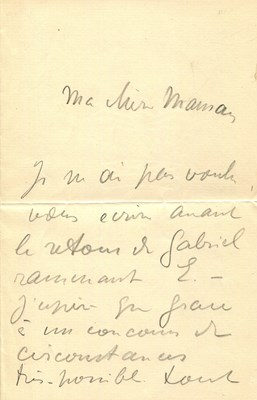 Ma chère Maman
Je n'ai pas voulu
vous écrire avant
le retour de Gabriel
ramenant E. —
J'espère que grâce
à un concours de
circonstances
très possible tout